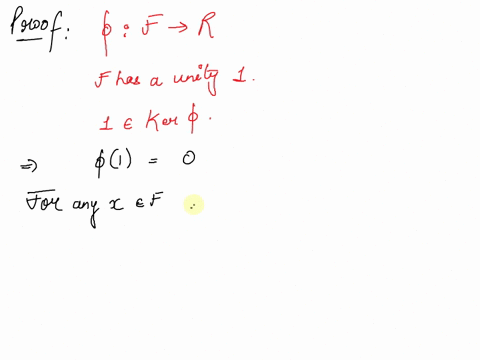 Proof: ϕ : F → R
F has a unity 1.
1 ∈ Ker ϕ.
⇒ ϕ(1) = 0
For any x ∈ F